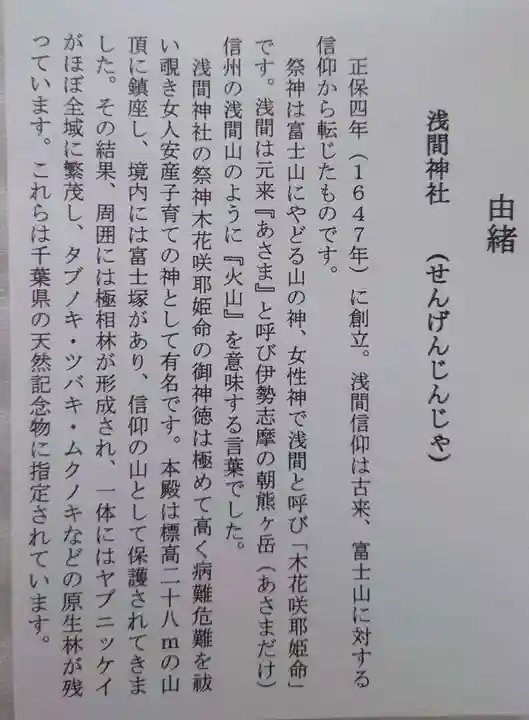 由緒
浅間神社　（せんげんじんじゃ）
正保四年（１６４７年）に創立。浅間信仰は古来、富士山に対する
信仰から転じたものです。
祭神は富士山にやどる山の神、女性神で浅間と呼び「木花咲耶姫命」
です。浅間は元来『あさま』と呼び伊勢志摩の朝熊ヶ岳（あさまだけ）
信州の浅間山のように『火山』を意味する言葉でした。
浅間神社の祭神木花咲耶姫命の御神徳は極めて高く病難危難を祓
い覗き女人安産子育ての神として有名です。本殿は標高二十八ｍの山
頂に鎮座し、境内には富士塚があり、信仰の山として保護されてきま
した。その結果、周囲には極相林が形成され、一体にはヤブニッケイ
がほぼ全域に繁茂し、タブノキ・ツバキ・ムクノキなどの原生林が残
っています。これらは千葉県の天然記念物に指定されています。